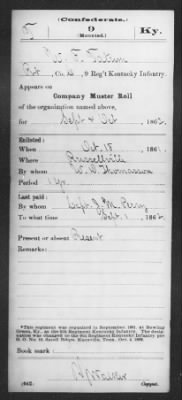 Confederate.
T 9 Ky.
(Mounted.)
W. F. Tatum
Pvt, Co. G, 9 Reg't Kentucky Infantry.
Appears on
Company Muster Roll
of the organization named above,
for Sept & Oct, 1862.
Enlisted:
When Oct. 15, 1861.
Where Russellville
By whom W. W. Thomasson
Period 1 yr.
Last paid:
By whom Capt. J. M. Perry
To what time Sept. 1, 1862.
Present or absent Present
Remarks:
*This regiment was organized in September 1861, at Bowling
Green, Ky., as the 5th Regiment Kentucky Infantry. The desig-
nation was changed to the 9th Regiment Kentucky Infantry per
Book mark:
(642) Copyist.